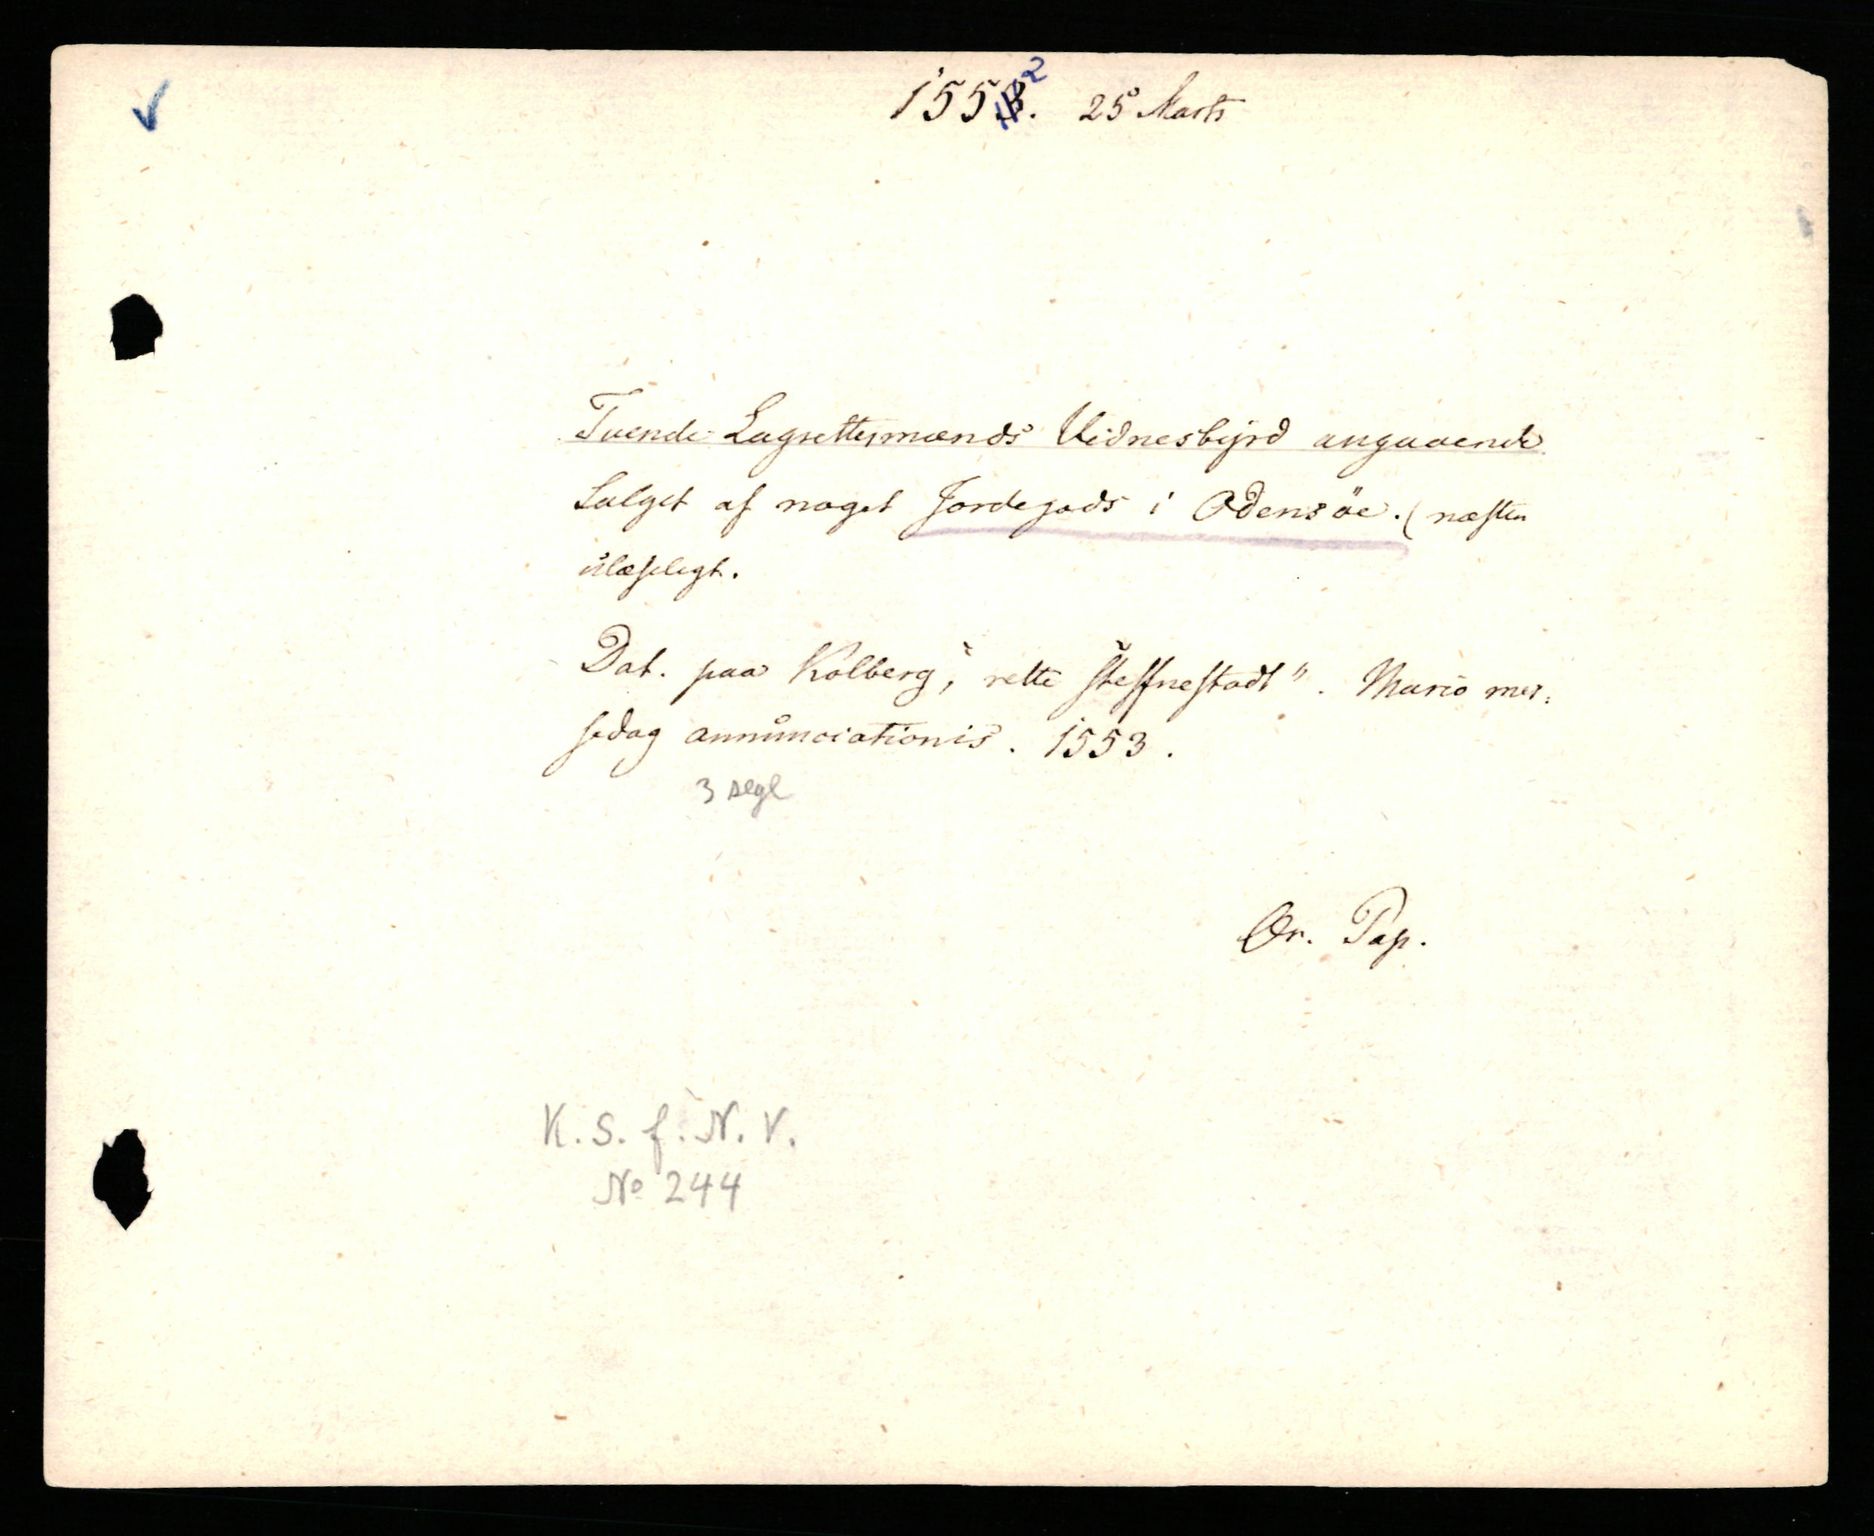 1553. 2 25 Marts
Tvende Lagrettesmænds Vidnesbyrd angaaende
Salget af noget Jordegods i Odensöe. (næsten
ulæseligt.
Dat. paa Kolberg, "rette steffnestadt". Mario mes:
sedag annunciationis. 1553.
3 segl
Or. Pap.
K. S. f. N. V.
No 244